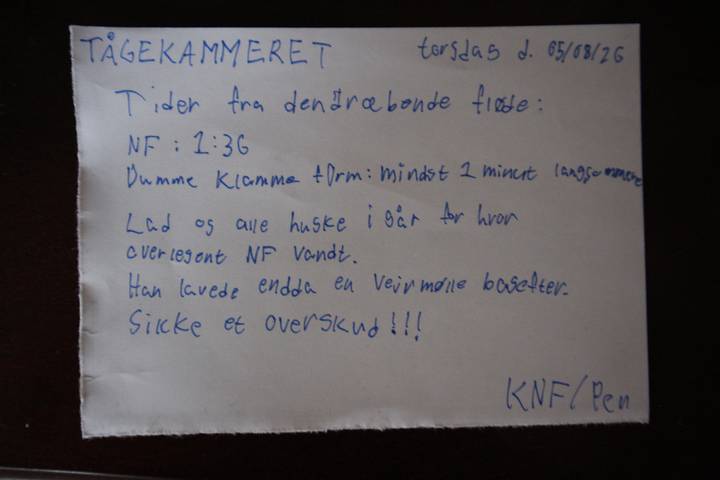 TÅGEKAMMERET torsdag d. 05/08/26
Tider fra den dræbende fløde:
NF : 1:36
Dumme Klamme fORM: mindst 1 minut langsommere
Lad os alle huske i går for hvor
overlegent NF vandt.
Han lavede endda en Vejrmølle bagefter.
Sikke et overskud!!!
KNF/Pen